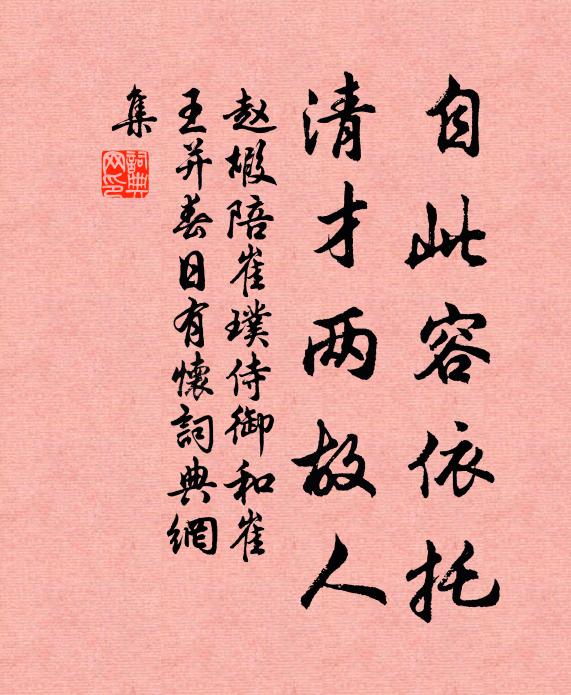 自此容依托
清才两故人
赵嘏陪崔璞侍御和崔
王并春日有懷詞典網
集
詞典网印